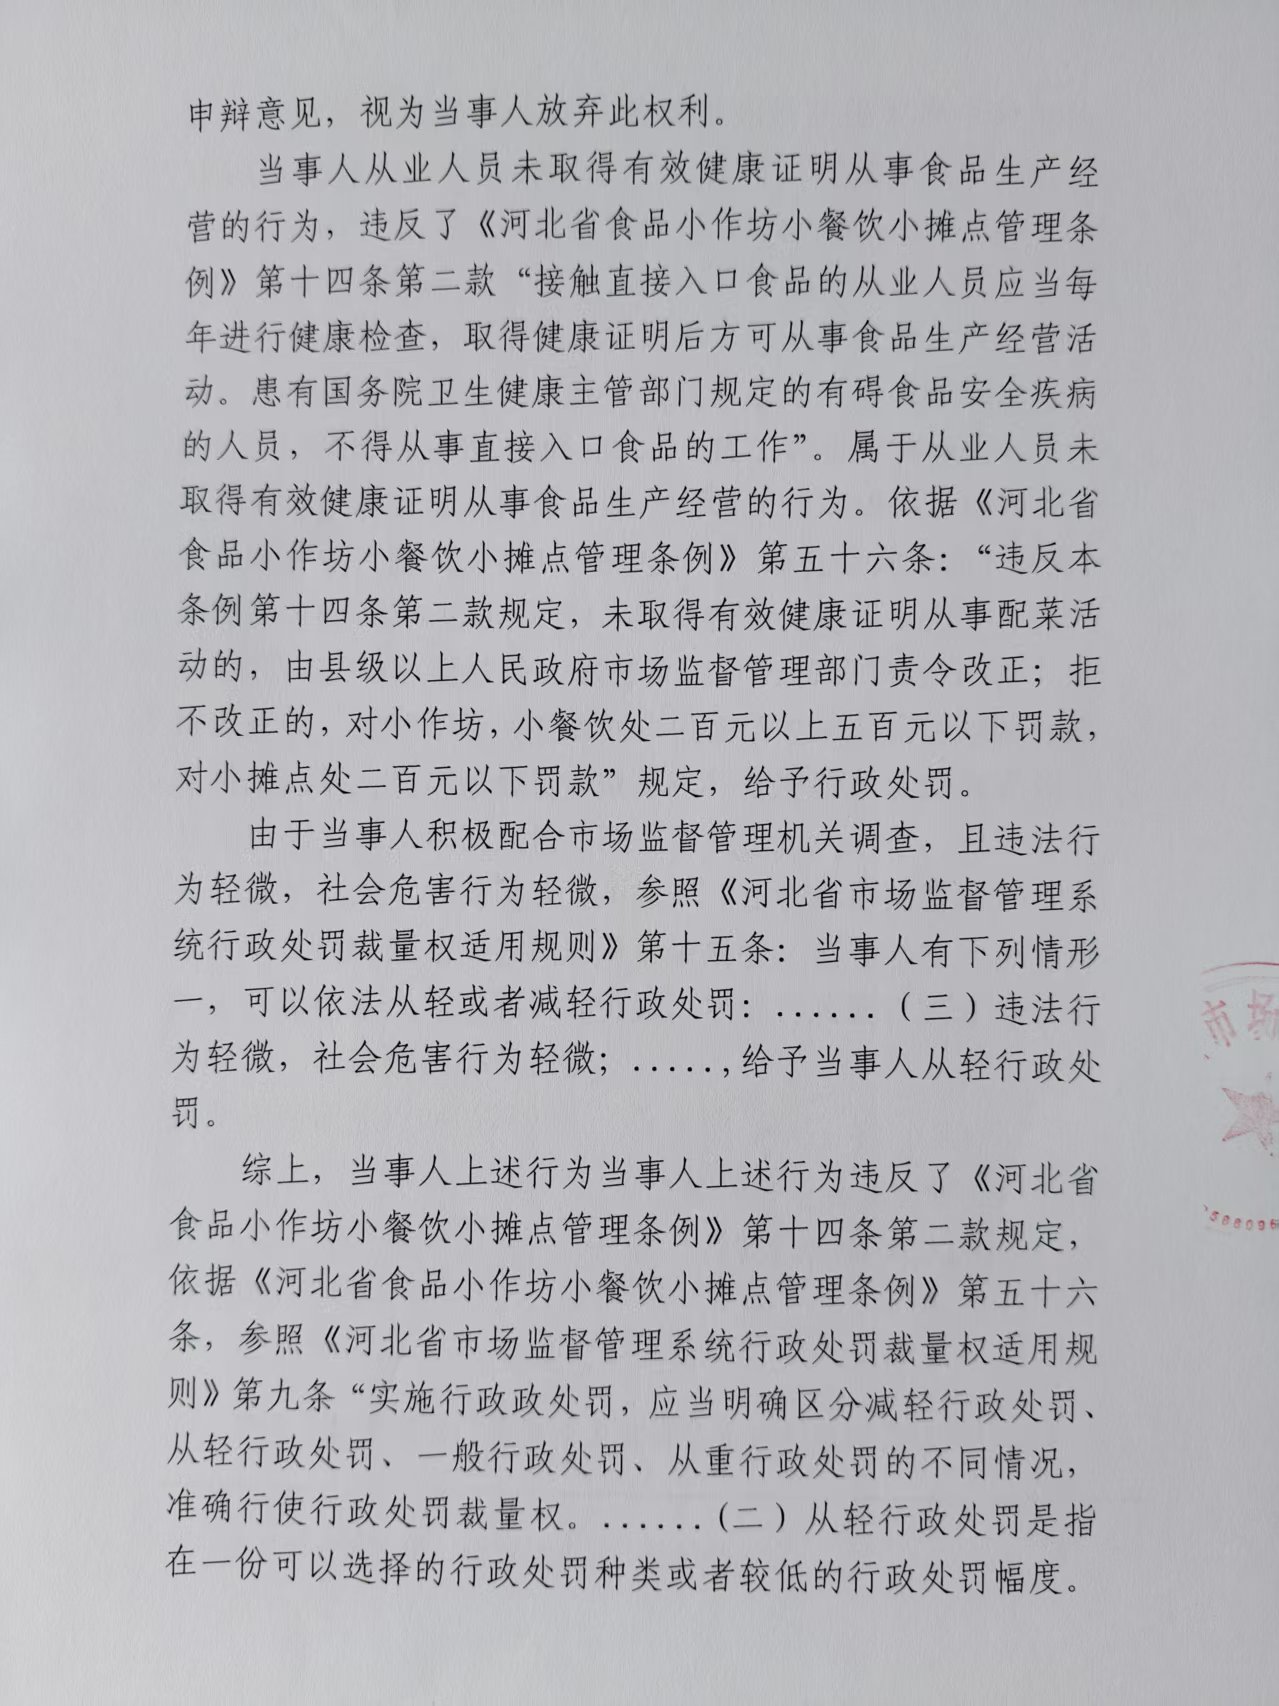 申辩意见，视为当事人放弃此权利。
当事人从业人员未取得有效健康证明从事食品生产经
营的行为，违反了《河北省食品小作坊小餐饮小摊点管理条
例》第十四条第二款“接触直接入口食品的从业人员应当每
年进行健康检查，取得健康证明后方可从事食品生产经营活
动。患有国务院卫生健康主管部门规定的有碍食品安全疾病
的人员，不得从事直接入口食品的工作”。属于从业人员未
取得有效健康证明从事食品生产经营的行为。依据《河北省
食品小作坊小餐饮小摊点管理条例》第五十六条：“违反本
条例第十四条第二款规定，未取得有效健康证明从事配菜活
动的，由县级以上人民政府市场监督管理部门责令改正；拒
不改正的，对小作坊，小餐饮处二百元以上五百元以下罚款，
对小摊点处二百元以下罚款”规定，给予行政处罚。
由于当事人积极配合市场监督管理机关调查，且违法行
为轻微，社会危害行为轻微，参照《河北省市场监督管理系
统行政处罚裁量权适用规则》第十五条：当事人有下列情形
一，可以依法从轻或者减轻行政处罚：......（三）违法行
为轻微，社会危害行为轻微；.....,给予当事人从轻行政处
罚。
综上，当事人上述行为当事人上述行为违反了《河北省
食品小作坊小餐饮小摊点管理条例》第十四条第二款规定，
依据《河北省食品小作坊小餐饮小摊点管理条例》第五十六
条，参照《河北省市场监督管理系统行政处罚裁量权适用规
则》第九条“实施行政政处罚，应当明确区分减轻行政处罚、
从轻行政处罚、一般行政处罚、从重行政处罚的不同情况，
准确行使行政处罚裁量权。......(二）从轻行政处罚是指
在一份可以选择的行政处罚种类或者较低的行政处罚幅度。
市场